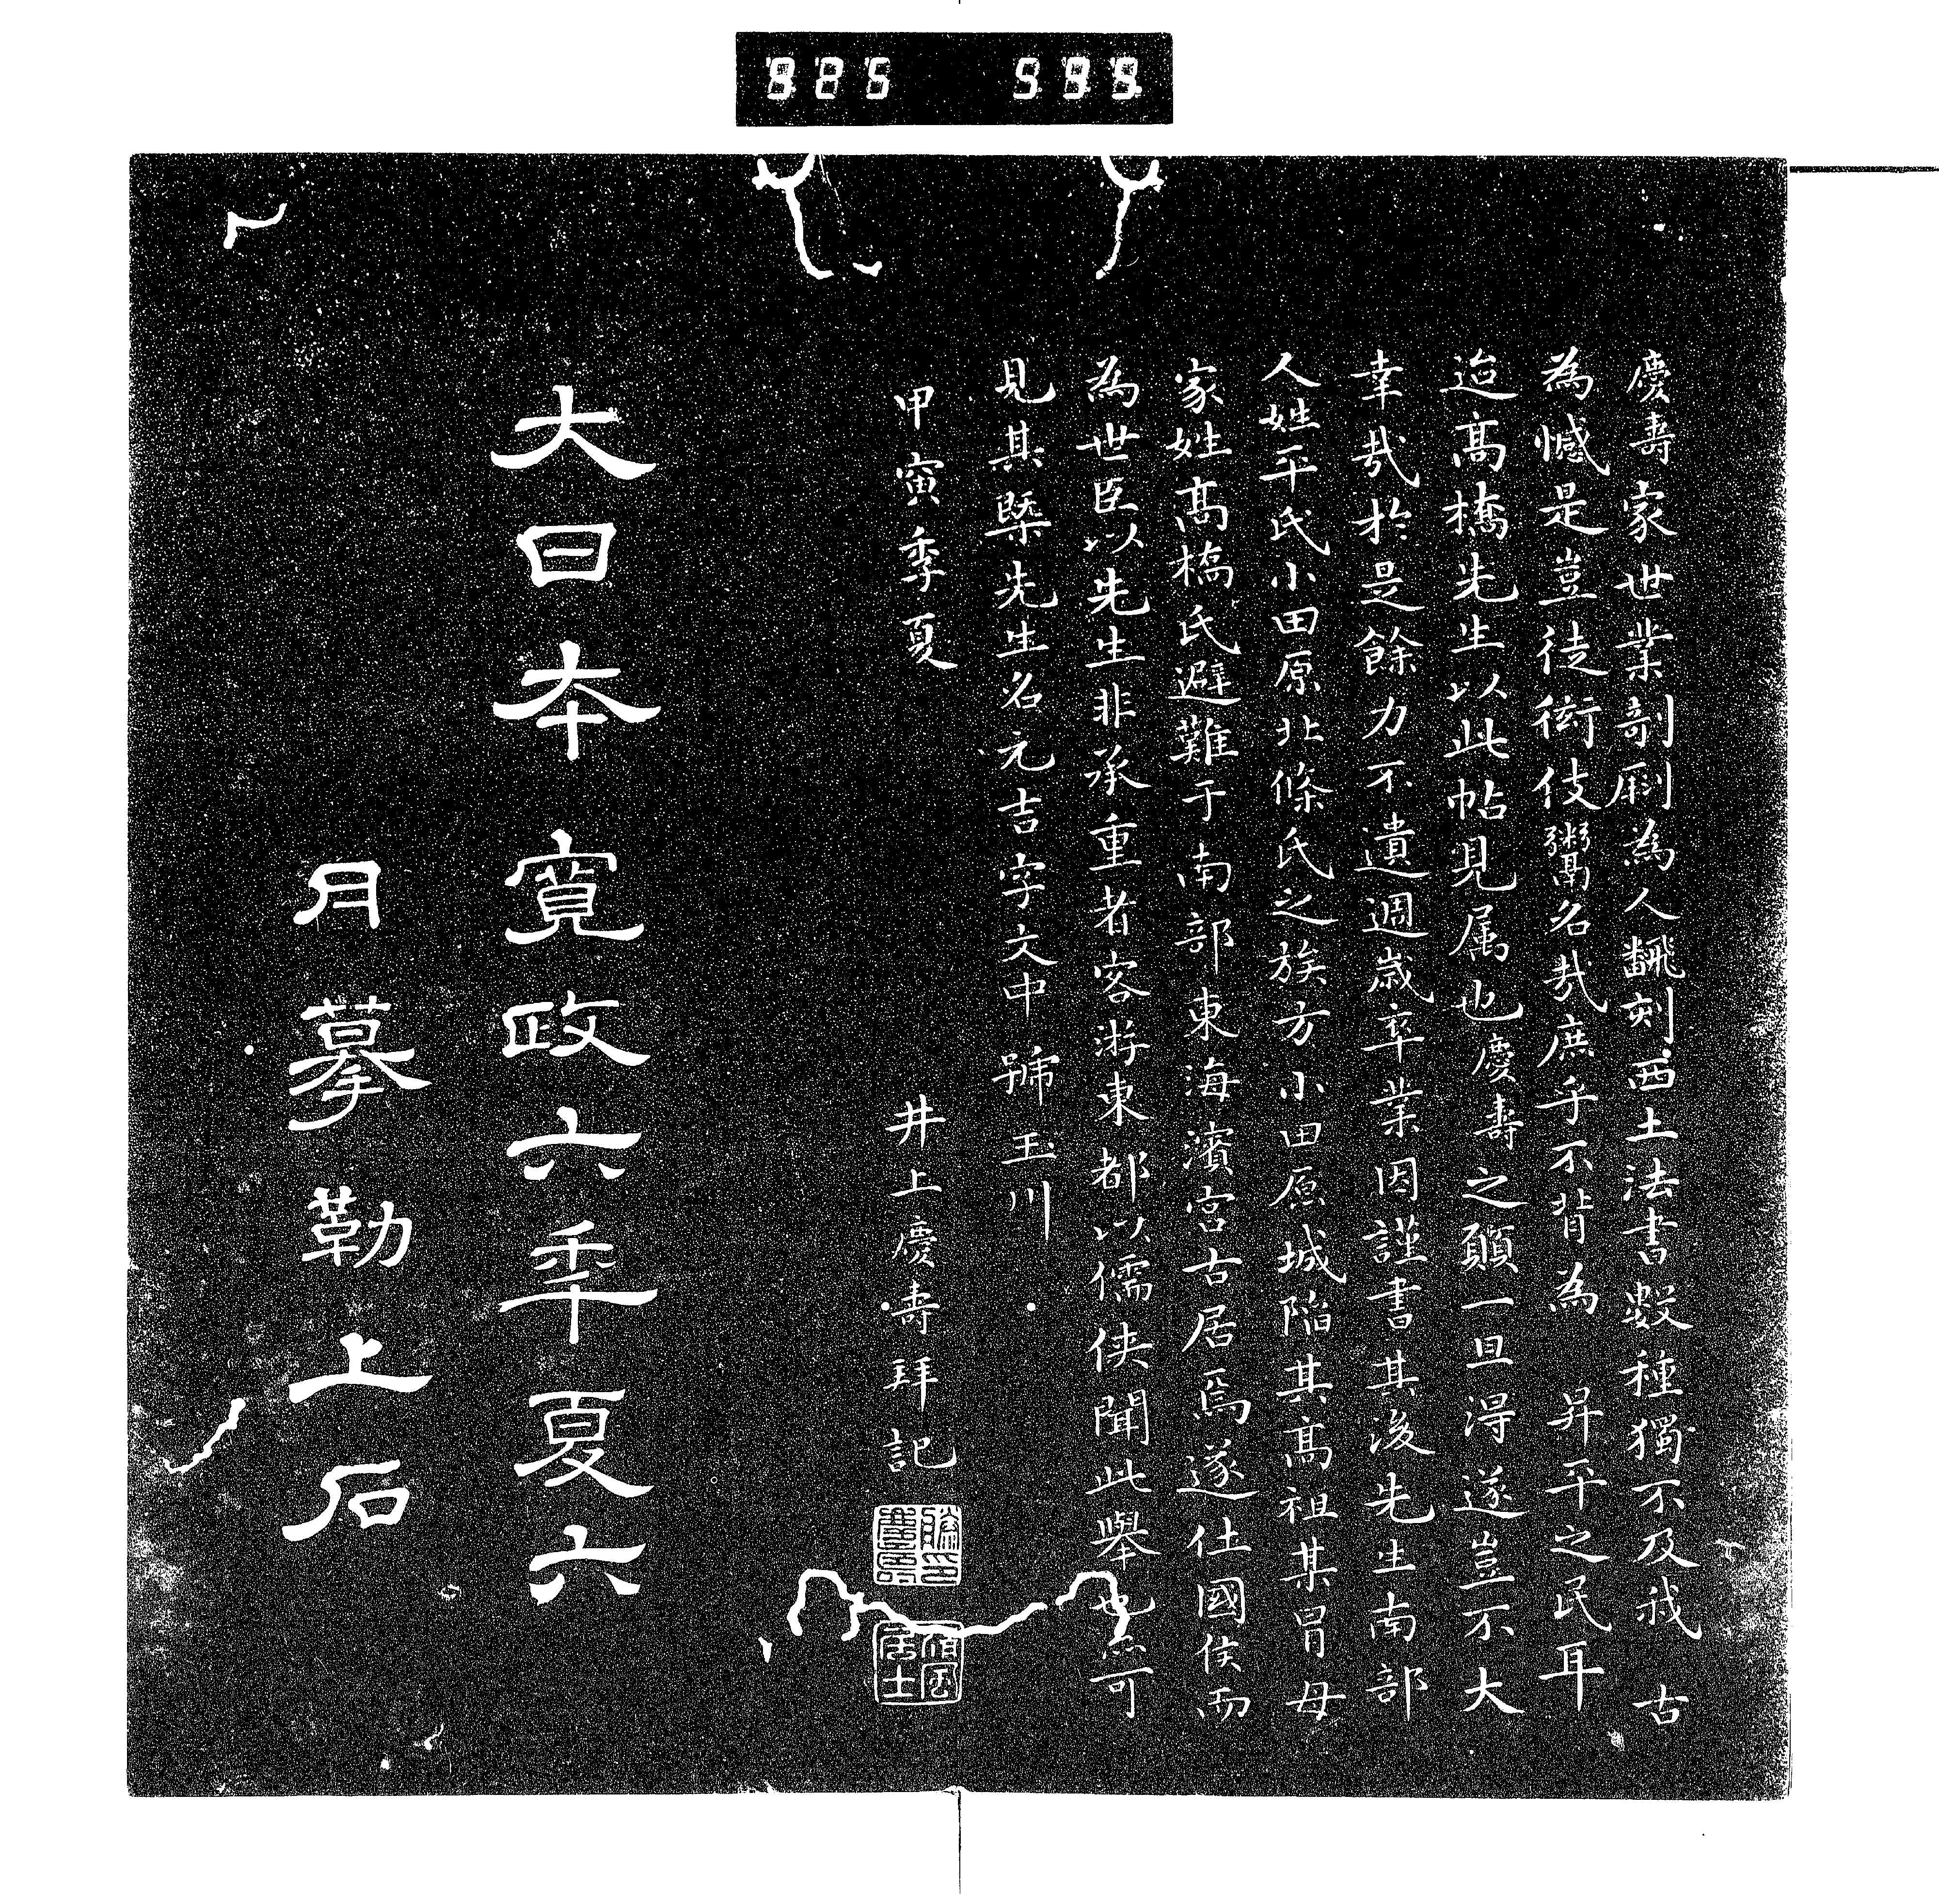 825 599
慶壽家世業剞劂為人飜刻西土法書數種獨不及我古
為憾是豈徒衒伎鬻名哉庶乎不背為 昇平之民耳
迨髙橋先生以此帖見属也慶壽之願一旦得遂豈不大
幸哉於是餘力不遺週歲卒業因謹書其後先生南部
人姓平氏小田原北條氏之族方小田原城陥其髙祖某冒母
家姓髙橋氏避難于南部東海濱宮古居焉遂仕國侯而
為世臣以先生非承重者客游東都以儒侠聞此舉也亦可
見其槩先生名元吉字文中 號玉川
甲寅季夏 井上慶壽拜記
大日本 寬政六年夏六
月摹勒上石